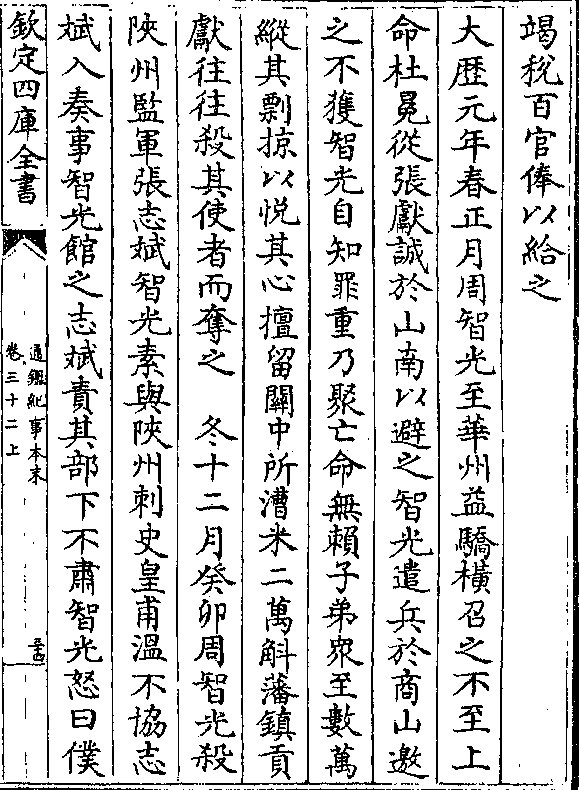 竭稅百官俸以給之
大歴元年春正月周智光至華州益驕橫召之不至上
命杜冕從張獻誠於山南以避之智光遣兵於商山邀
之不獲智光自知罪重乃聚亡命無賴子弟衆至數萬
縱其剽掠以悦其心擅留關中所漕米二萬斛藩鎮貢
獻往往殺其使者而奪之　冬十二月癸卯周智光殺
陜州監軍張志斌智光素與陜州刺史皇甫溫不協志
斌入奏事智光館之志斌責其部下不肅智光怒曰僕
欽定四庫全書
通鑑紀事本末
卷三十二上
三十四